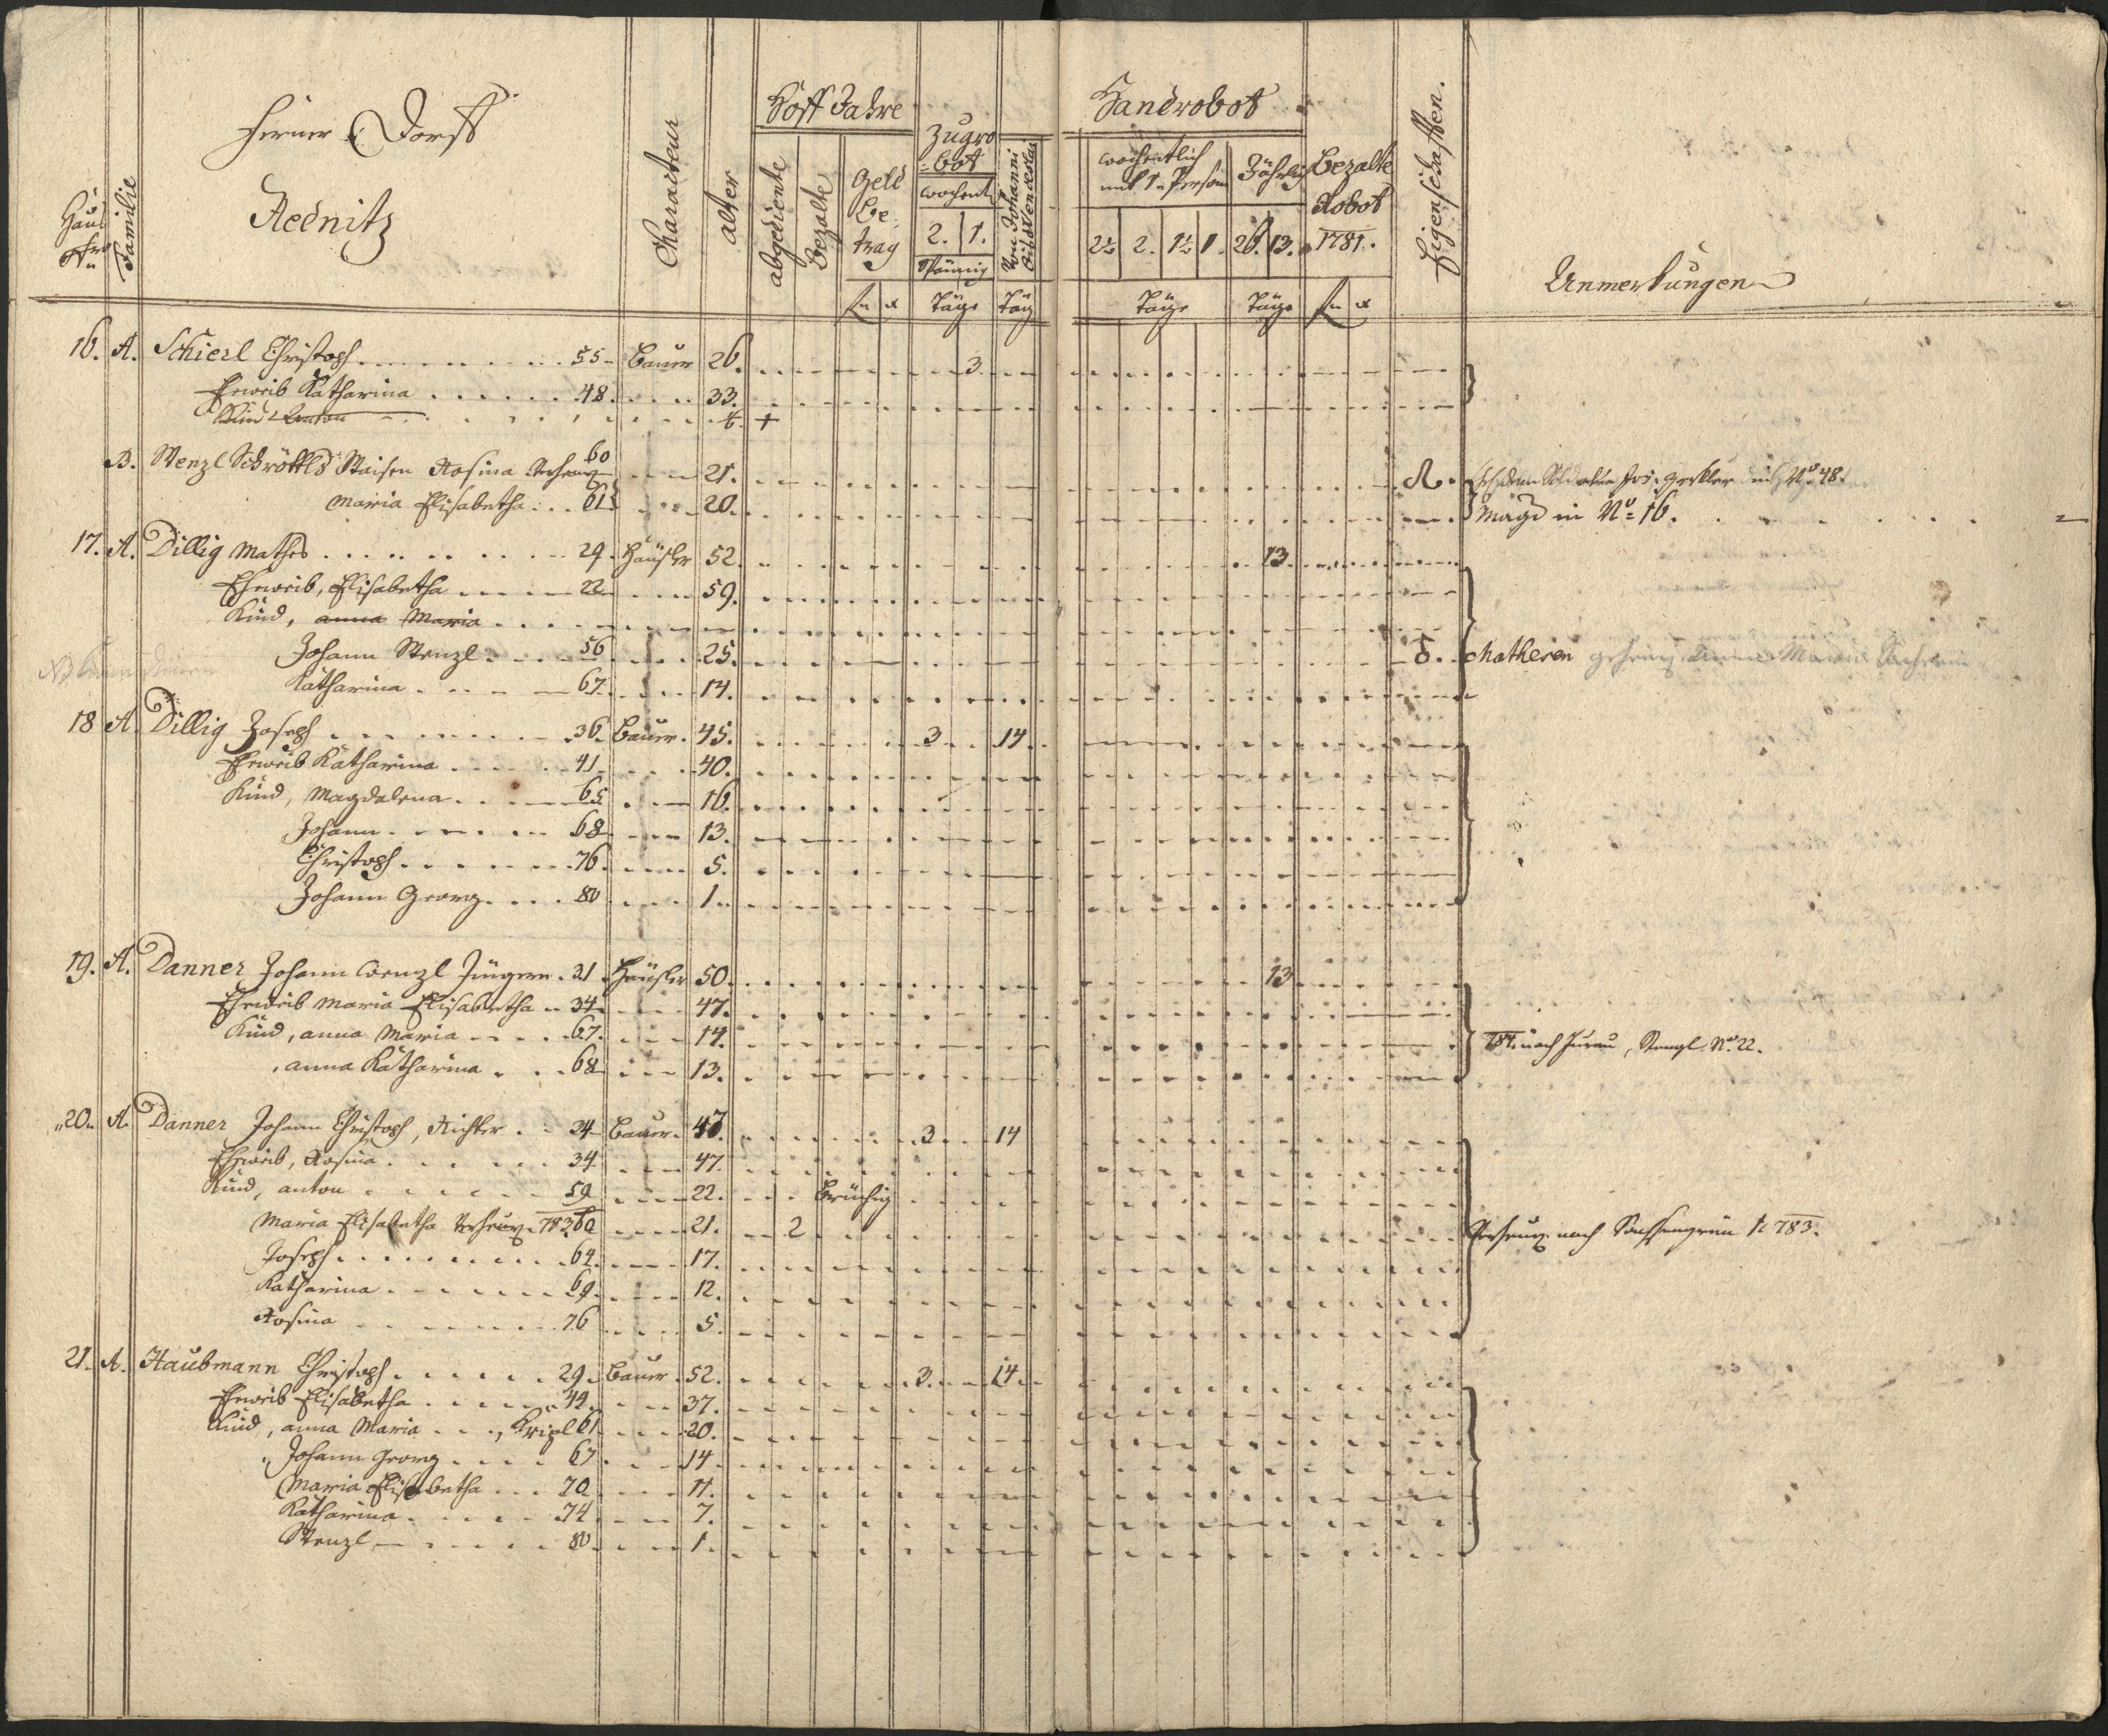 Ferner Dorff
Rednitz
Haus Nro
Familie
Charaцteur
alter
Hoff Jahre
abgediente
bezalte
Geld be: trag
Zugro =bot
wochent
2. 1.
Spännig
Von Johanni biß Wenceslai
Handrobot
wochentlich mit 1. Person
Jährlich
2½ 2. 1½ 1. 26. 13.
Bezalte Robot 1781.
Eigenschafften.
Anmerkungen
Täge Täg Täge Täge
16. A. Schierl Christoph 55 Bauer 26. 3.
Eheweib Katharina 48. 33.
Kind Anton 6. +
B. Wenzl Schröttls Waisen Rosina 60 21.
Maria Elisabetha 61 20. Magd in No= 16.
17. A. Dillig Mathes 29. Häusler 52. 13.
Eheweib, Elisabetha 22 59.
Kind, anna Maria
Johann Wenzl 56 25. Matheser
Katharina 67. 14.
18 A. Dillig Joseph 36. Bauer. 45. 3 14
Eheweib Katharina 41 40.
Kind, Magdalena 65 16.
Johann 68 13.
Christoph 76. 5.
Johann Georg 80 1.
19. A. Danner Johann Wenzl Jüngern 31 Häusler 50. 13
Eheweib Maria Elisabetha 34 47.
Kind, anna Maria 67. 14. No. 22.
, anna Katharina 68 13.
20. A. Danner Johann Christoph, Richter 34 Bauer. 47. 3. 14
Eheweib, Rosina 34 47.
Kind, anton 59 22. brüchig
Maria Elisabetha 783 60 21. 2 nach 783.
Joseph 64. 17.
Katharina 69. 12.
Rosina 76 5.
21. A. Haubmann Christoph 29. Bauer. 52. 3. 14
Eheweib Elisabetha 44. 37.
Kind, anna Maria , Kripl 61 20.
Johann Georg 67 14
Maria Elisabetha 70 11.
Katharina 74 7.
Wenzl 80 1.